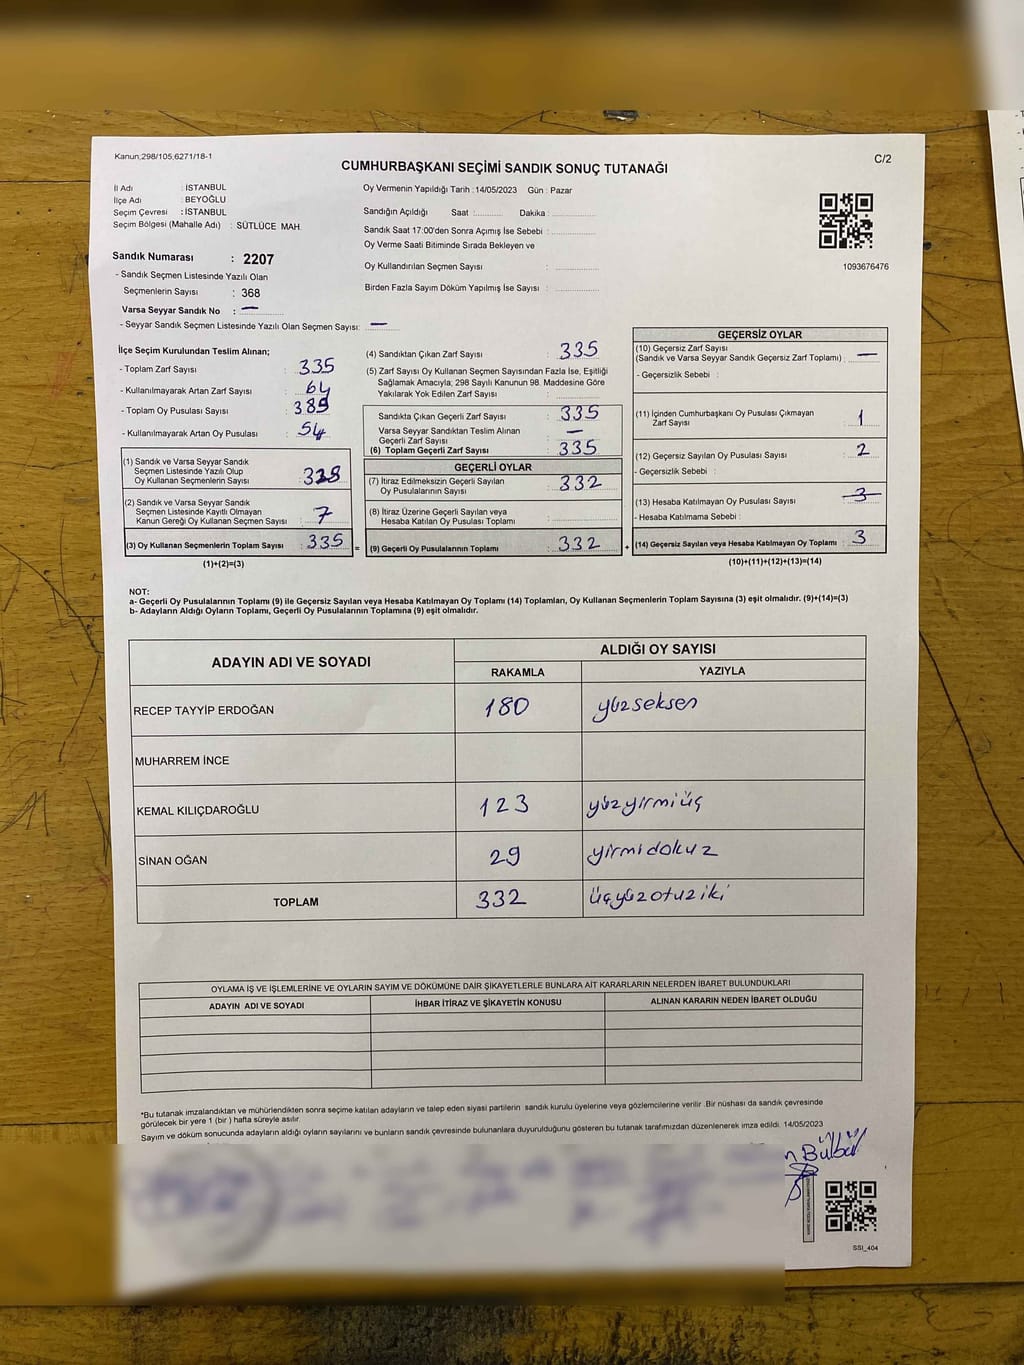 Kanun;298/105,6271/18-1
C/2
CUMHURBAŞKANI SEÇİMİ SANDIK SONUÇ TUTANAĞI
İl Adı : İSTANBUL
İlçe Adı : BEYOĞLU
Seçim Çevresi : İSTANBUL
Seçim Bölgesi (Mahalle Adı) : SÜTLÜCE MAH.
Sandık Numarası : 2207
- Sandık Seçmen Listesinde Yazılı Olan
Seçmenlerin Sayısı : 368
Varsa Seyyar Sandık No : —
- Seyyar Sandık Seçmen Listesinde Yazılı Olan Seçmen Sayısı: —
Oy Vermenin Yapıldığı Tarih : 14/05/2023 Gün : Pazar
Sandığın Açıldığı Saat :.......... Dakika :..............
Sandık Saat 17:00'den Sonra Açımış İse Sebebi :..............
Oy Verme Saati Bitiminde Sırada Bekleyen ve
Oy Kullandırılan Seçmen Sayısı : ..............
Birden Fazla Sayım Döküm Yapılmış İse Sayısı : ..............
1093676476
İlçe Seçim Kurulundan Teslim Alınan;
- Toplam Zarf Sayısı : 335
- Kullanılmayarak Artan Zarf Sayısı : 64
- Toplam Oy Pusulası Sayısı : 389
- Kullanılmayarak Artan Oy Pusulası : 54
(1) Sandık ve Varsa Seyyar Sandık
Seçmen Listesinde Yazılı Olup
Oy Kullanan Seçmenlerin Sayısı : 328
(2) Sandık ve Varsa Seyyar Sandık
Seçmen Listesinde Kayıtlı Olmayan
Kanun Gereği Oy Kullanan Seçmen Sayısı : 7
(3) Oy Kullanan Seçmenlerin Toplam Sayısı : 335
(1)+(2)=(3)
(4) Sandıktan Çıkan Zarf Sayısı : 335
(5) Zarf Sayısı Oy Kullanan Seçmen Sayısından Fazla İse, Eşitliği
Sağlamak Amacıyla; 298 Sayılı Kanunun 98. Maddesine Göre
Yakılarak Yok Edilen Zarf Sayısı : ..............
Sandıkta Çıkan Geçerli Zarf Sayısı : 335
Varsa Seyyar Sandıktan Teslim Alınan
Geçerli Zarf Sayısı : —
(6) Toplam Geçerli Zarf Sayısı : 335
GEÇERLİ OYLAR
(7) İtiraz Edilmeksizin Geçerli Sayılan
Oy Pusulalarının Sayısı : 332
(8) İtiraz Üzerine Geçerli Sayılan veya
Hesaba Katılan Oy Pusulası Toplamı : ..............
= (9) Geçerli Oy Pusulalarının Toplamı : 332 +
GEÇERSİZ OYLAR
(10) Geçersiz Zarf Sayısı
(Sandık ve Varsa Seyyar Sandık Geçersiz Zarf Toplamı) : —
- Geçersizlik Sebebi :
(11) İçinden Cumhurbaşkanı Oy Pusulası Çıkmayan
Zarf Sayısı : 1
(12) Geçersiz Sayılan Oy Pusulası Sayısı : 2
- Geçersizlik Sebebi :
(13) Hesaba Katılmayan Oy Pusulası Sayısı : 3
- Hesaba Katılmama Sebebi :
(14) Geçersiz Sayılan veya Hesaba Katılmayan Oy Toplamı : 3
(10)+(11)+(12)+(13)=(14)
NOT:
a- Geçerli Oy Pusulalarının Toplamı (9) ile Geçersiz Sayılan veya Hesaba Katılmayan Oy Toplamı (14) Toplamları, Oy Kullanan Seçmenlerin Toplam Sayısına (3) eşit olmalıdır. (9)+(14)=(3)
b- Adayların Aldığı Oyların Toplamı, Geçerli Oy Pusulalarının Toplamına (9) eşit olmalıdır.
ADAYIN ADI VE SOYADI
ALDIĞI OY SAYISI
RAKAMLA YAZIYLA
RECEP TAYYİP ERDOĞAN 180 yüzseksen
MUHARREM İNCE
KEMAL KILIÇDAROĞLU 123 yüzyirmiüç
SİNAN OĞAN 29 yirmidokuz
TOPLAM 332 üçyüzotuziki
OYLAMA İŞ VE İŞLEMLERİNE VE OYLARIN SAYIM VE DÖKÜMÜNE DAİR ŞİKAYETLERLE BUNLARA AİT KARARLARIN NELERDEN İBARET BULUNDUKLARI
ADAYIN ADI VE SOYADI İHBAR İTİRAZ VE ŞİKAYETİN KONUSU ALINAN KARARIN NEDEN İBARET OLDUĞU
*Bu tutanak imzalandıktan ve mühürlendikten sonra seçime katılan adayların ve talep eden siyasi partilerin sandık kurulu üyelerine veya gözlemcilerine verilir .Bir nüshası da sandık çevresinde
görülecek bir yere 1 (bir ) hafta süreyle asılır.
Sayım ve döküm sonucunda adayların aldığı oyların sayılarını ve bunların sandık çevresinde bulunanlara duyurulduğunu gösteren bu tutanak tarafımızdan düzenlenerek imza edildi. 14/05/2023
n Bülbül
SSI_404